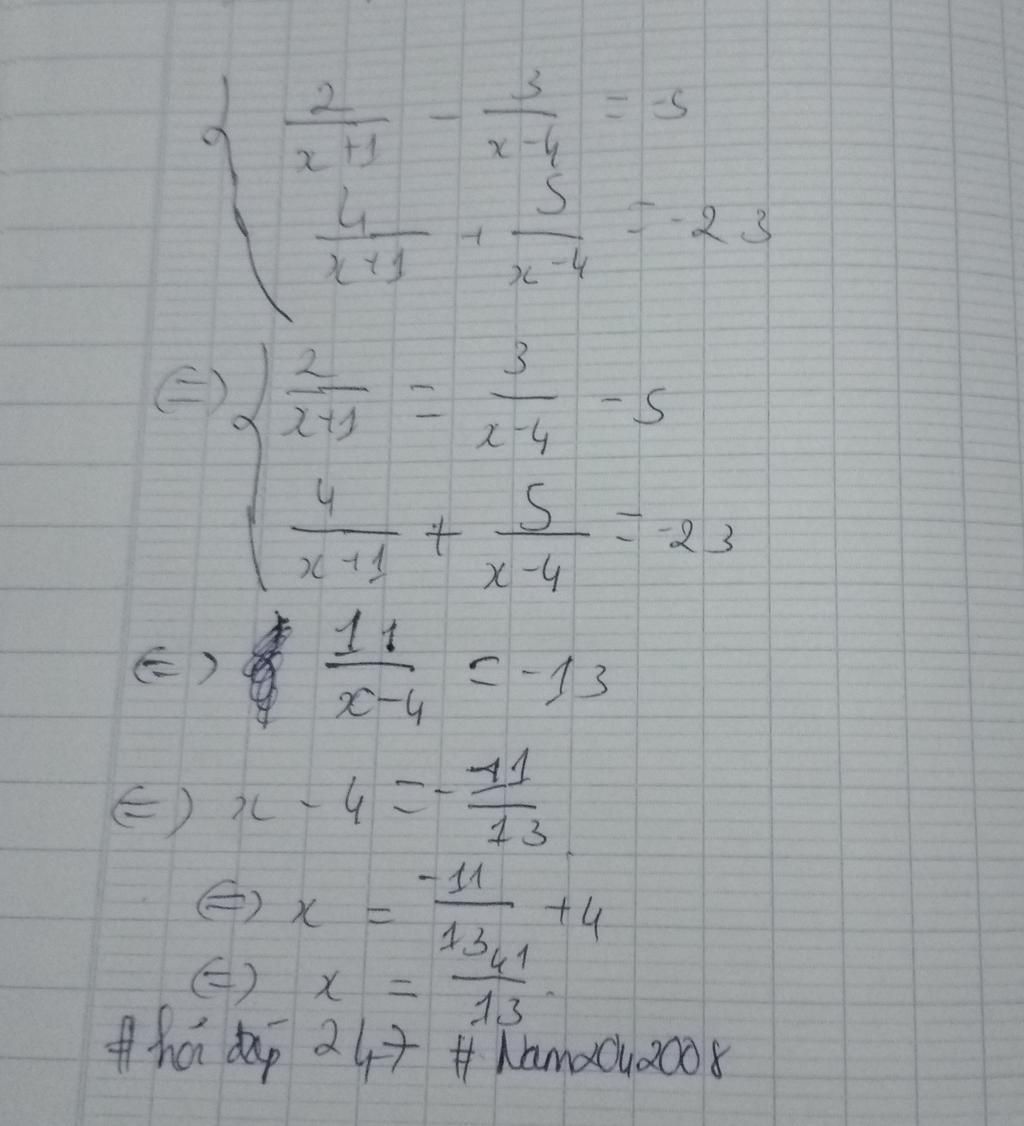 { 2/(x+1) - 3/(x-4) = -5
4/(x+1) + 5/(x-4) = -23
(=) { 2/(x+1) = 3/(x-4) - 5
4/(x+1) + 5/(x-4) = -23
(=) 11/(x-4) = -13
(=) x - 4 = - 11/13
(=) x = -11/13 + 4
(=) x = 41/13
# hỏi đáp 247 # Nam2042008